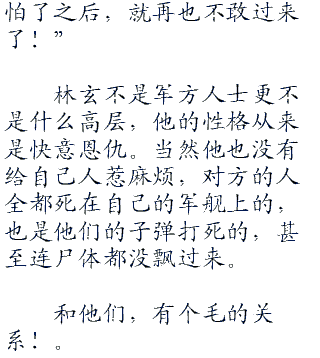 怕了之后，就再也不敢过来
了！”
林玄不是军方人士更不
是什么高层，他的性格从来
是快意恩仇。当然他也没有
给自己人惹麻烦，对方的人
全都死在自己的军舰上的，
也是他们的子弹打死的，甚
至连尸体都没飘过来。
和他们，有个毛的关
系！。